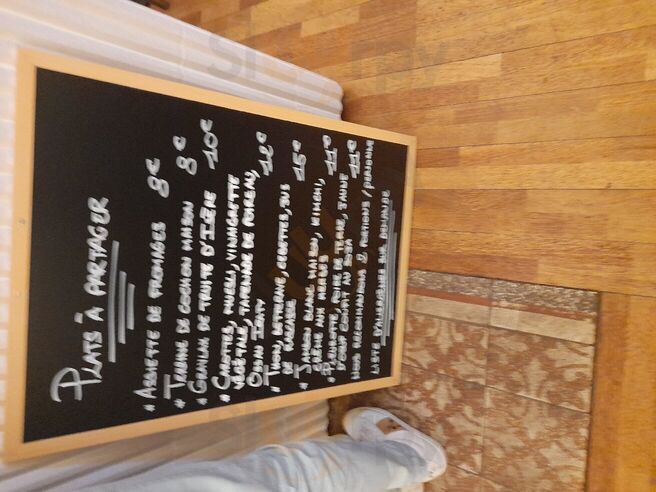 PLATS À PARTAGER
* ASSIETTE DE FROMAGES 8€
* TERRINE DE COCHON MAISON 8€
* GRAVLAX DE TRUITE D'ISÈRE 10€
* CAROTTES, MUESLI, VINAIGRETTE
VÉGÉTALE, TAPENADE DE POIREAU,
OSSAU IRATY 12€
* THON, BETTERAVE, CREVETTES, JUS
DE 15€
* JAMBON BLANC MAISON, KIMCHI,
CRÈME AUX HERBES 11€
* POMME DE TERRE, JAUNE
D'OEUF CONFIT AU SOJA 11€
NOUS RECOMMANDONS 2 PORTIONS / PERSONNE
LISTE D'ALLERGÈNES SUR DEMANDE